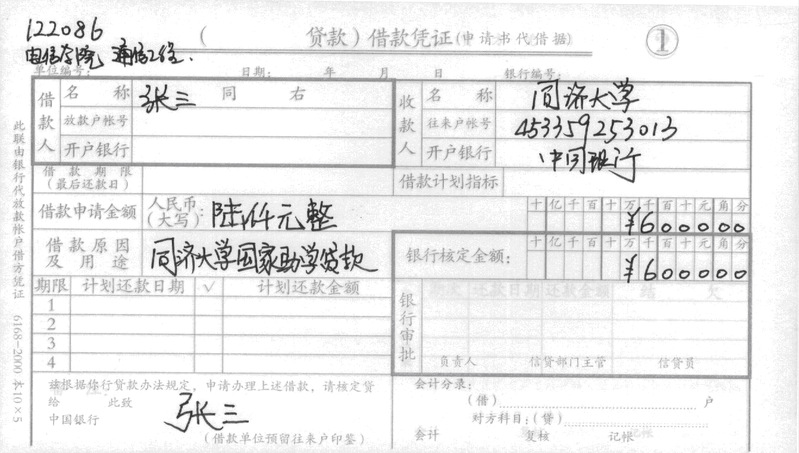 122086
电信学院 通信2班.
( 贷款) 借款凭证(申请书代借据) ①
单位编号: 日期: 年 月 日 银行编号:
借款人 名称 张三 同右 收款人 名称 同济大学
放款户帐号 往来户帐号 453359253013
开户银行 开户银行 中国银行
借款期限(最后还款日) 借款计划指标
借款申请金额 人民币:(大写): 陆仟元整 十亿千百十万千百十元角分 ¥600000
借款原因及用途 同济大学国家助学贷款 银行核定金额: 十亿千百十万千百十元角分 ¥600000
期限 计划还款日期 √ 计划还款金额 期限 计划还款日期 还款金额 结欠
1
2
3
4
银行审批
负责人 信贷部门主管 信贷员
兹根据你行贷款办法规定,申请办理上述借款,请核定贷
给 此致
中国银行 张三
(借款单位预留往来户印签)
会计分录:
(借) 户
对方科目:(贷)
会计 复核 记帐
此联由银行代放款帐户借方凭证 6168-2000本10×5